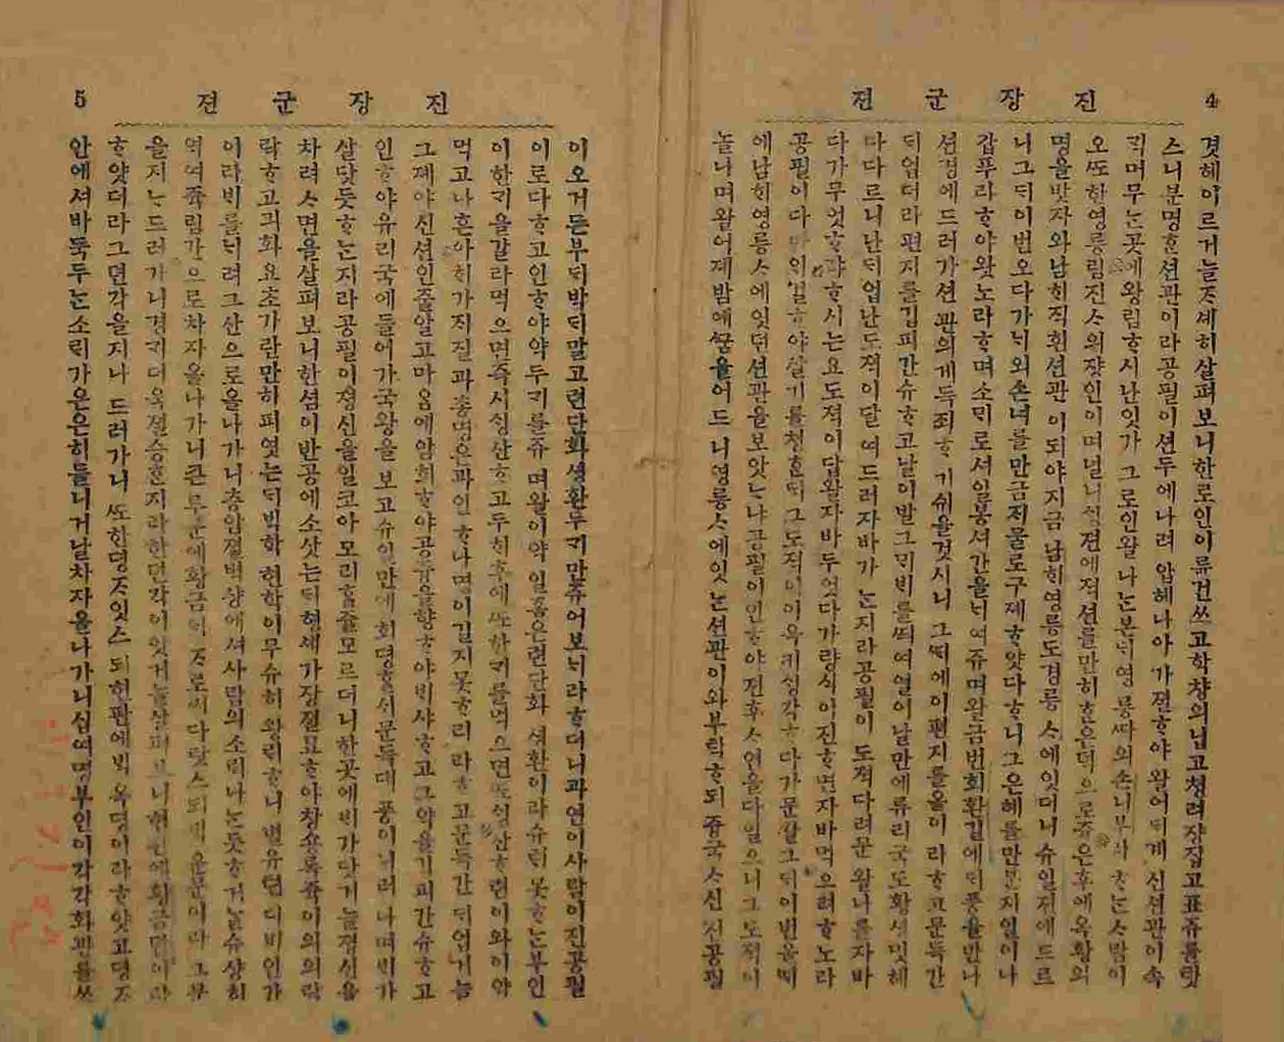 4
진장군젼
겻헤이르거늘ᄌᆞ셰히살펴보니한로인이류건쓰고학창의닙고쳥려장집고표쥬를탓
스니분명ᄒᆞᆫ션관이라공필이션두에나려압헤나아가졀ᄒᆞ야왈어ᄃᆡ게신션관이속
ᄀᆡ머무ᄂᆞᆫ곳에왕림ᄒᆞ시난잇가그로인왈나ᄂᆞᆫ본ᄃᆡ영릉ᄯᅡ의손니부라ᄒᆞᄂᆞᆫᄉᆞ람이
오ᄯᅩ한영릉림진ᄉᆞ의쟝인이며널니ᄉᆡᆼ젼에젹션를만히ᄒᆞᆫ은덕으로쥭은후에옥황의
명을밧자와남ᄒᆡ직흰션관이되야지금남ᄒᆡ영릉도경릉ᄉᆞ에잇더니슈일젼에드르
니그ᄃᆡ이번오다가ᄂᆡ외손녀를만금ᄌᆡ물로구졔ᄒᆞ얏다ᄒᆞ니그은혜를만분지일이나
갑푸라ᄒᆞ야왓노라ᄒᆞ며소ᄆᆡ로셔일봉셔간을ᄂᆡ여쥬며왈금번회환길에ᄃᆡ풍을만나
션경에드러가션관의게득죄ᄒᆞ기쉬올것시니그ᄯᆡ에이편지를올이라ᄒᆞ고문득간
ᄃᆡ업더라편지를깁피간슈ᄒᆞ고날이발그ᄆᆡᄇᆡ를ᄯᅴ여열이날만에류리국도황셩밋헤
다다르니난ᄃᆡ업난도젹이달여드러자바가ᄂᆞᆫ지라공필이도젹다려문왈나를자바
다가무엇ᄒᆞ랴ᄒᆞ시는요도젹이답왈자바두엇다가량식이진ᄒᆞ면자바먹으려ᄒᆞ노라
공필이다만ᄋᆡ걸ᄒᆞ야살기를쳥ᄒᆞᆫᄃᆡ그도젹이이윽키ᄉᆡᆼ각ᄒᆞ다가문왈그ᄃᆡ이번올ᄯᆡ
에남ᄒᆡ영릉ᄉᆞ에잇던션관을보앗ᄂᆞ냐공필이인ᄒᆞ야젼후ᄉᆞ연을다일으니그도젹이
놀나며왈어졔밤에ᄭᅮᆷ을어드니영릉ᄉᆞ에잇ᄂᆞᆫ션관이와부탁ᄒᆞ되즁국ᄉᆞ신진공필
5
진장군젼
이오거든부ᄃᆡ박ᄃᆡ말고련단화ᄉᆡᆼ환두ᄀᆡ만쥬어보ᄂᆡ라ᄒᆞ더니과연이사람이진공필
이로다ᄒᆞ고인ᄒᆞ야약두ᄀᆡ를쥬며왈이약일홈은련단화ᄉᆡᆼ환이라슈ᄐᆡ못ᄒᆞᄂᆞᆫ부인
이한ᄀᆡ을갈라먹으면즉시ᄉᆡᆼ산ᄒᆞ고두ᄒᆡ후에ᄯᅩ한ᄀᆡ를먹으면ᄯᅩᄉᆡᆼ산ᄒᆞ련이와이약
먹고나흔아ᄒᆡ가ᄌᆡ질과총명은과인ᄒᆞ나명이길지못ᄒᆞ리라ᄒᆞ고문득간ᄃᆡ업거늘
그졔야신션인줄알고마ᄋᆞᆷ에암희ᄒᆞ야공즁을향ᄒᆞ야ᄇᆡ샤ᄒᆞ고그약을기피간슈ᄒᆞ고
인ᄒᆞ야유리국에들어가국왕을보고슈일만에회뎡ᄒᆞᆯ시문득대풍이니러나며ᄇᆡ가
살닷듯ᄒᆞᄂᆞᆫ지라공필이졍신을일코아모리ᄒᆞᆯ쥴모르더니한곳에ᄇᆡ가닷거늘졍신을
차려ᄉᆞ면을살펴보니한셤이반공에소삿는ᄃᆡ형세가장졀묘ᄒᆞ야창숑록쥭이의의락
락ᄒᆞ고긔화요초가란만히퍼엿는ᄃᆡᄇᆡᆨ학현학이무슈히왕ᄅᆡᄒᆞ니별유텬디비인간
이라ᄇᆡ를ᄂᆡ려그산으로올나가니층암졀벽상에셔사람의소ᄅᆡ나ᄂᆞᆫ듯ᄒᆞ거ᄂᆞᆯ슈상히
역여쥭림간으로차자올나가니큰루문에황금ᄃᆡᄌᆞ로ᄡᅥ다랏스되ᄇᆡᆨ운문이라그문
을지ᄂᆞ드러가니경ᄀᆡ더욱졀승ᄒᆞᆫ지라한뎐각이잇거늘살펴보니현판에황금뎐이라
ᄒᆞ얏더라그뎐각을지나드러가니ᄯᅩ한뎡ᄌᆞ잇스되현판에ᄇᆡᆨ옥뎡이라ᄒᆞ얏고뎡ᄌᆞ
안에셔바둑두ᄂᆞᆫ소ᄅᆡ가은은히들니거날차자올나가니십여명부인이각각화관를쓰